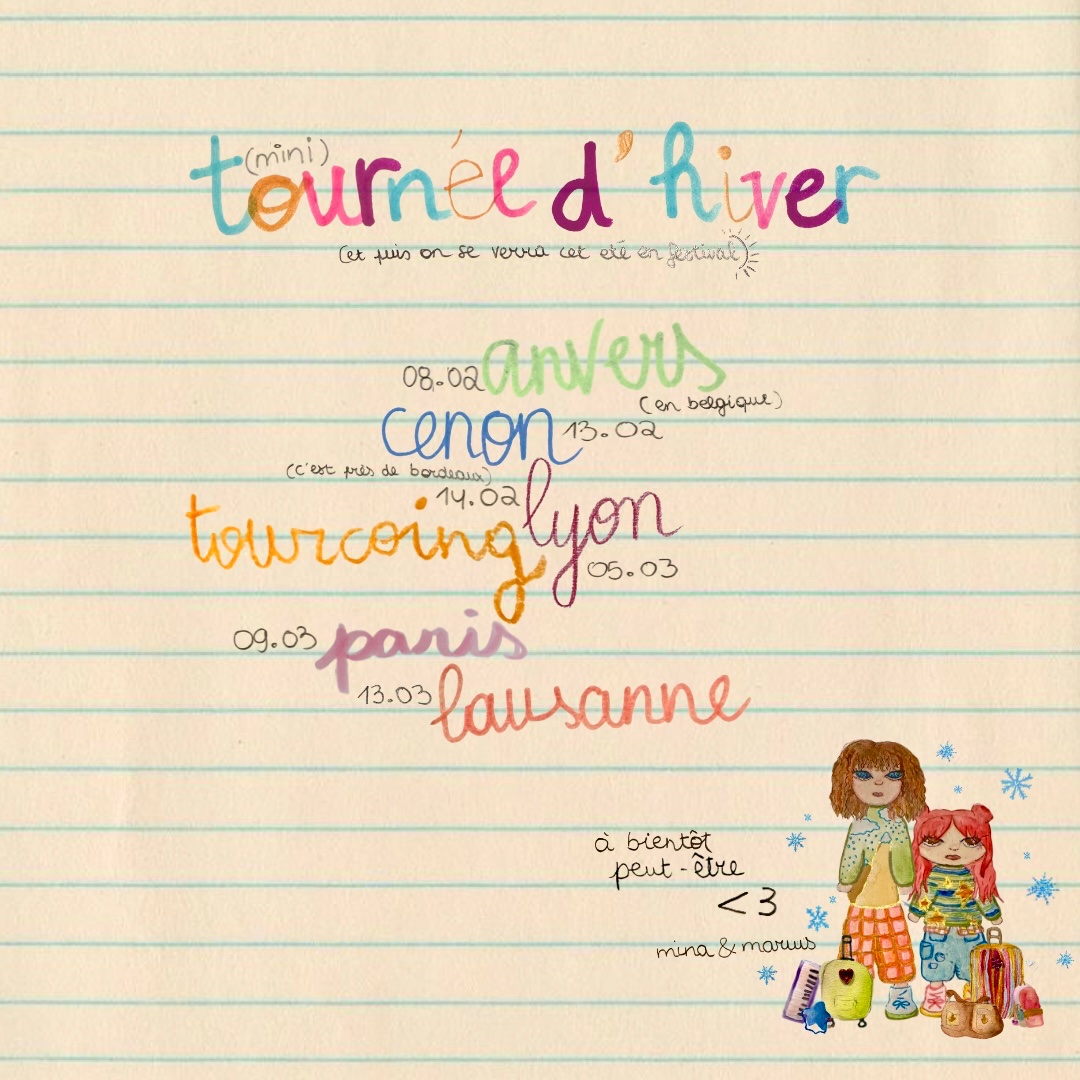 (mini)
tournée d'hiver
(et puis on se verra cet été en festival)
08.02 anvers
(en belgique)
cenon 13.02
(c'est près de bordeaux)
14.02
tourcoing
lyon
05.03
09.03 paris
13.03 lausanne
à bientôt
peut-être
<3
mina & marius